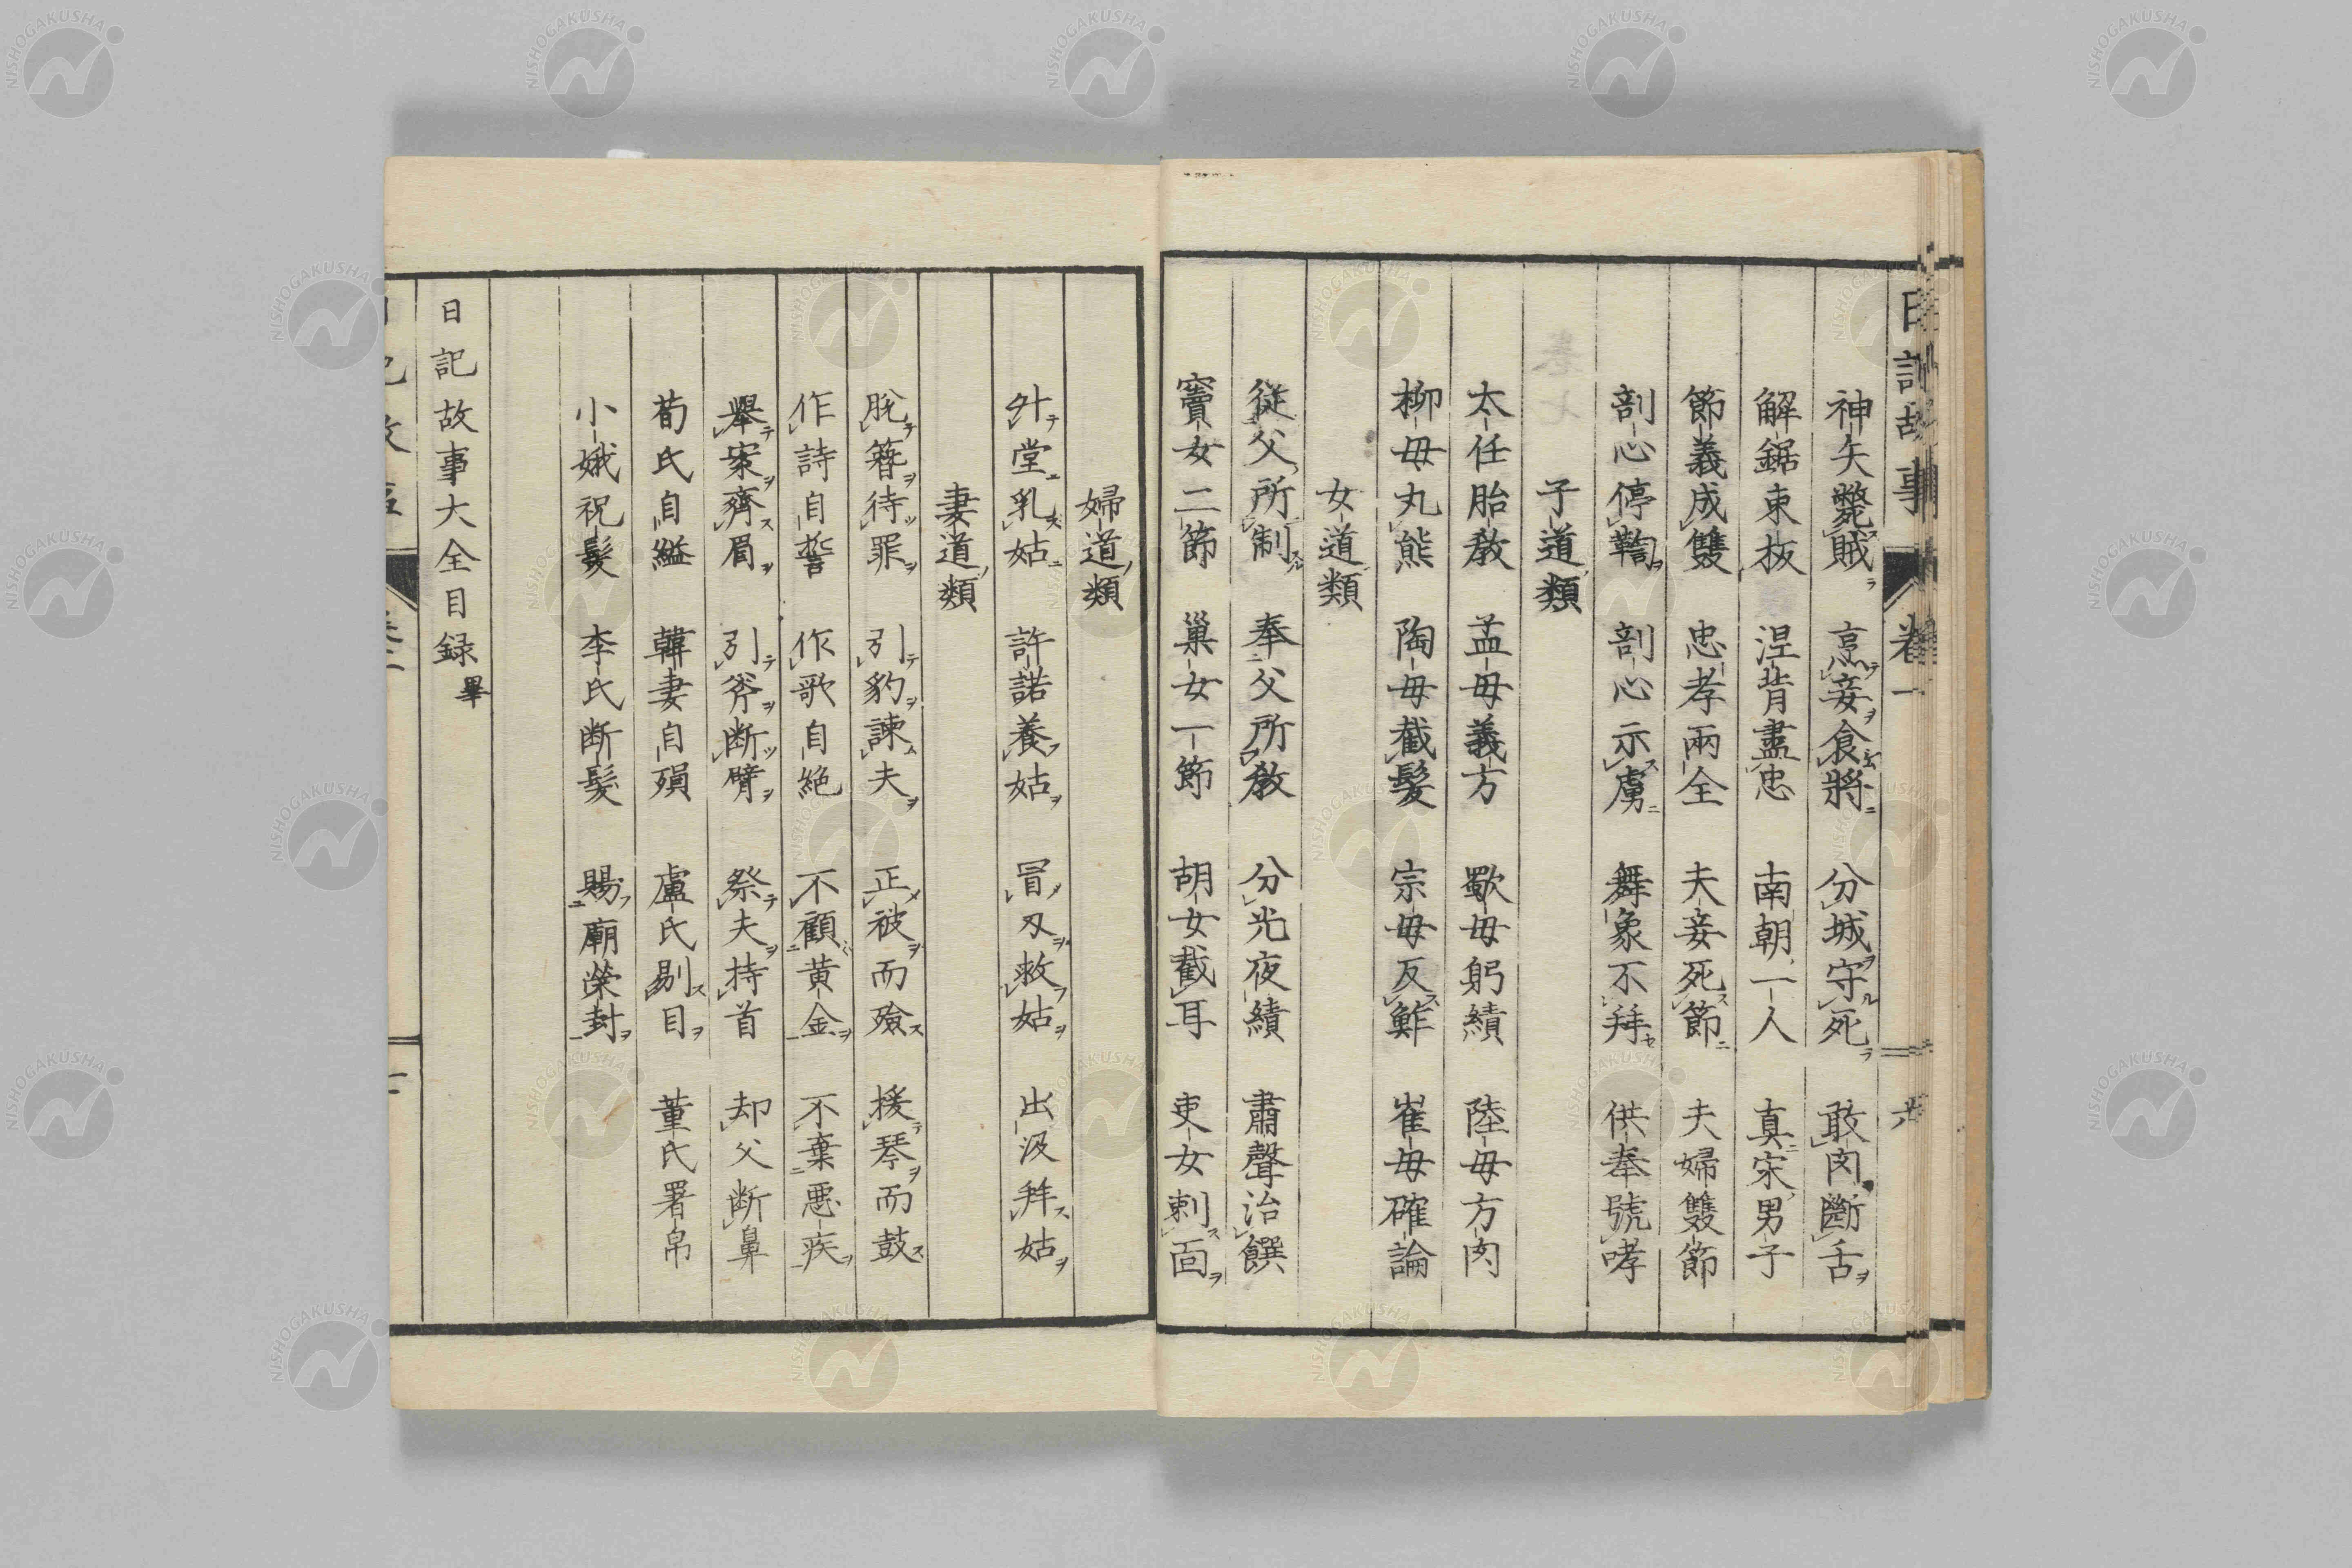 日記故事 卷一 六
神矢斃賊 烹妾食將 分城守死 敢肉斷舌
解鋸束板 涅背盡忠 南朝一人 真宋男子
節義成雙 忠孝兩全 夫妾死節 夫婦雙節
剖心停鞫 剖心示虜 舞象不拜 供奉號哮
子道類
太任胎教 孟母義方 歜母躬績 陸母方肉
柳母丸熊 陶母截髮 宗母反鮓 崔母確論
女道類
從父所制 奉父所教 分光夜績 肅聲治饌
竇女二節 巢女一節 胡女截耳 吏女刺面
婦道類
升堂乳姑 許諾養姑 冒刃救姑 出汲拜姑
妻道類
脫簪待罪 引豹諫夫 正被而殮 援琴而鼓
作詩自誓 作歌自絕 不顧黃金 不棄惡疾
舉案齊眉 引斧斷臂 祭夫持首 却父斷鼻
荀氏自縊 韓妻自殞 盧氏剔目 董氏署帛
小娥祝髮 李氏斷髮 賜廟榮封
日記故事大全目録畢